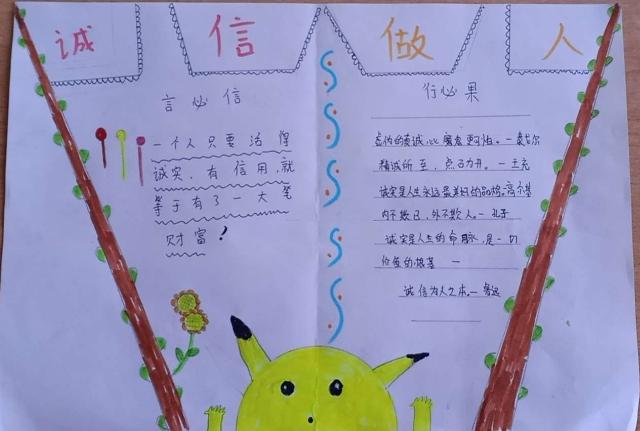 诚信做人
言必信
一个人只要活得
诚实，有信用，就
等于有了一大笔
财富！
行必果
虚伪的真诚，比魔鬼更可怕。一泰戈尔
精诚所至，金石为开。一王充
诚实是人生永远最美好的品格。高尔基
内不欺己，外不欺人。一孔子
诚实是人生的命脉，是一切
价值的根基 一
诚信为人之本。一鲁迅